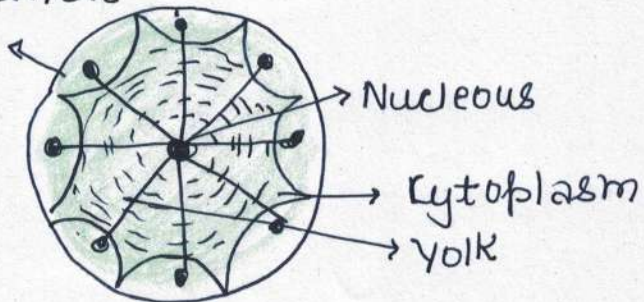 Nucleous
Cytoplasm
Yolk